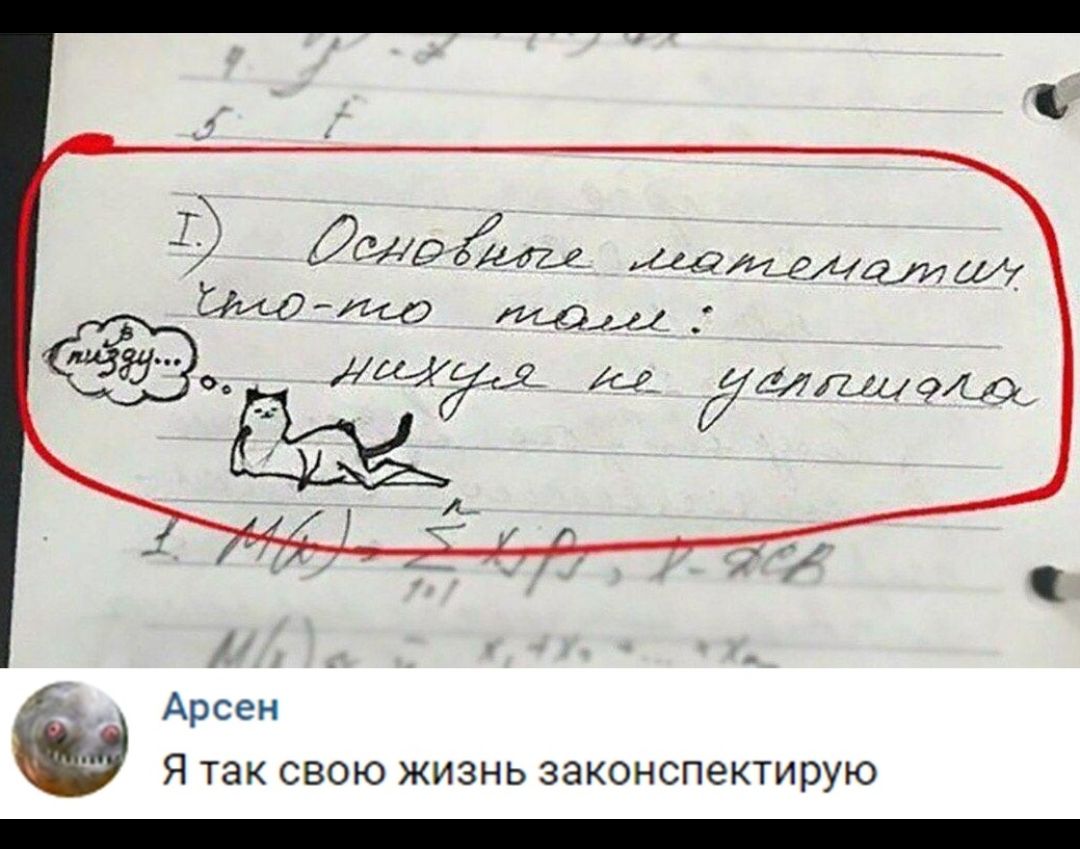 5.
I.) Основные математич.
что-то там:
в
пизду...
нихуя не услышала
1. M(x) = n Σ j=1 xjpj, X - ДСВ
Арсен
Я так свою жизнь законспектирую